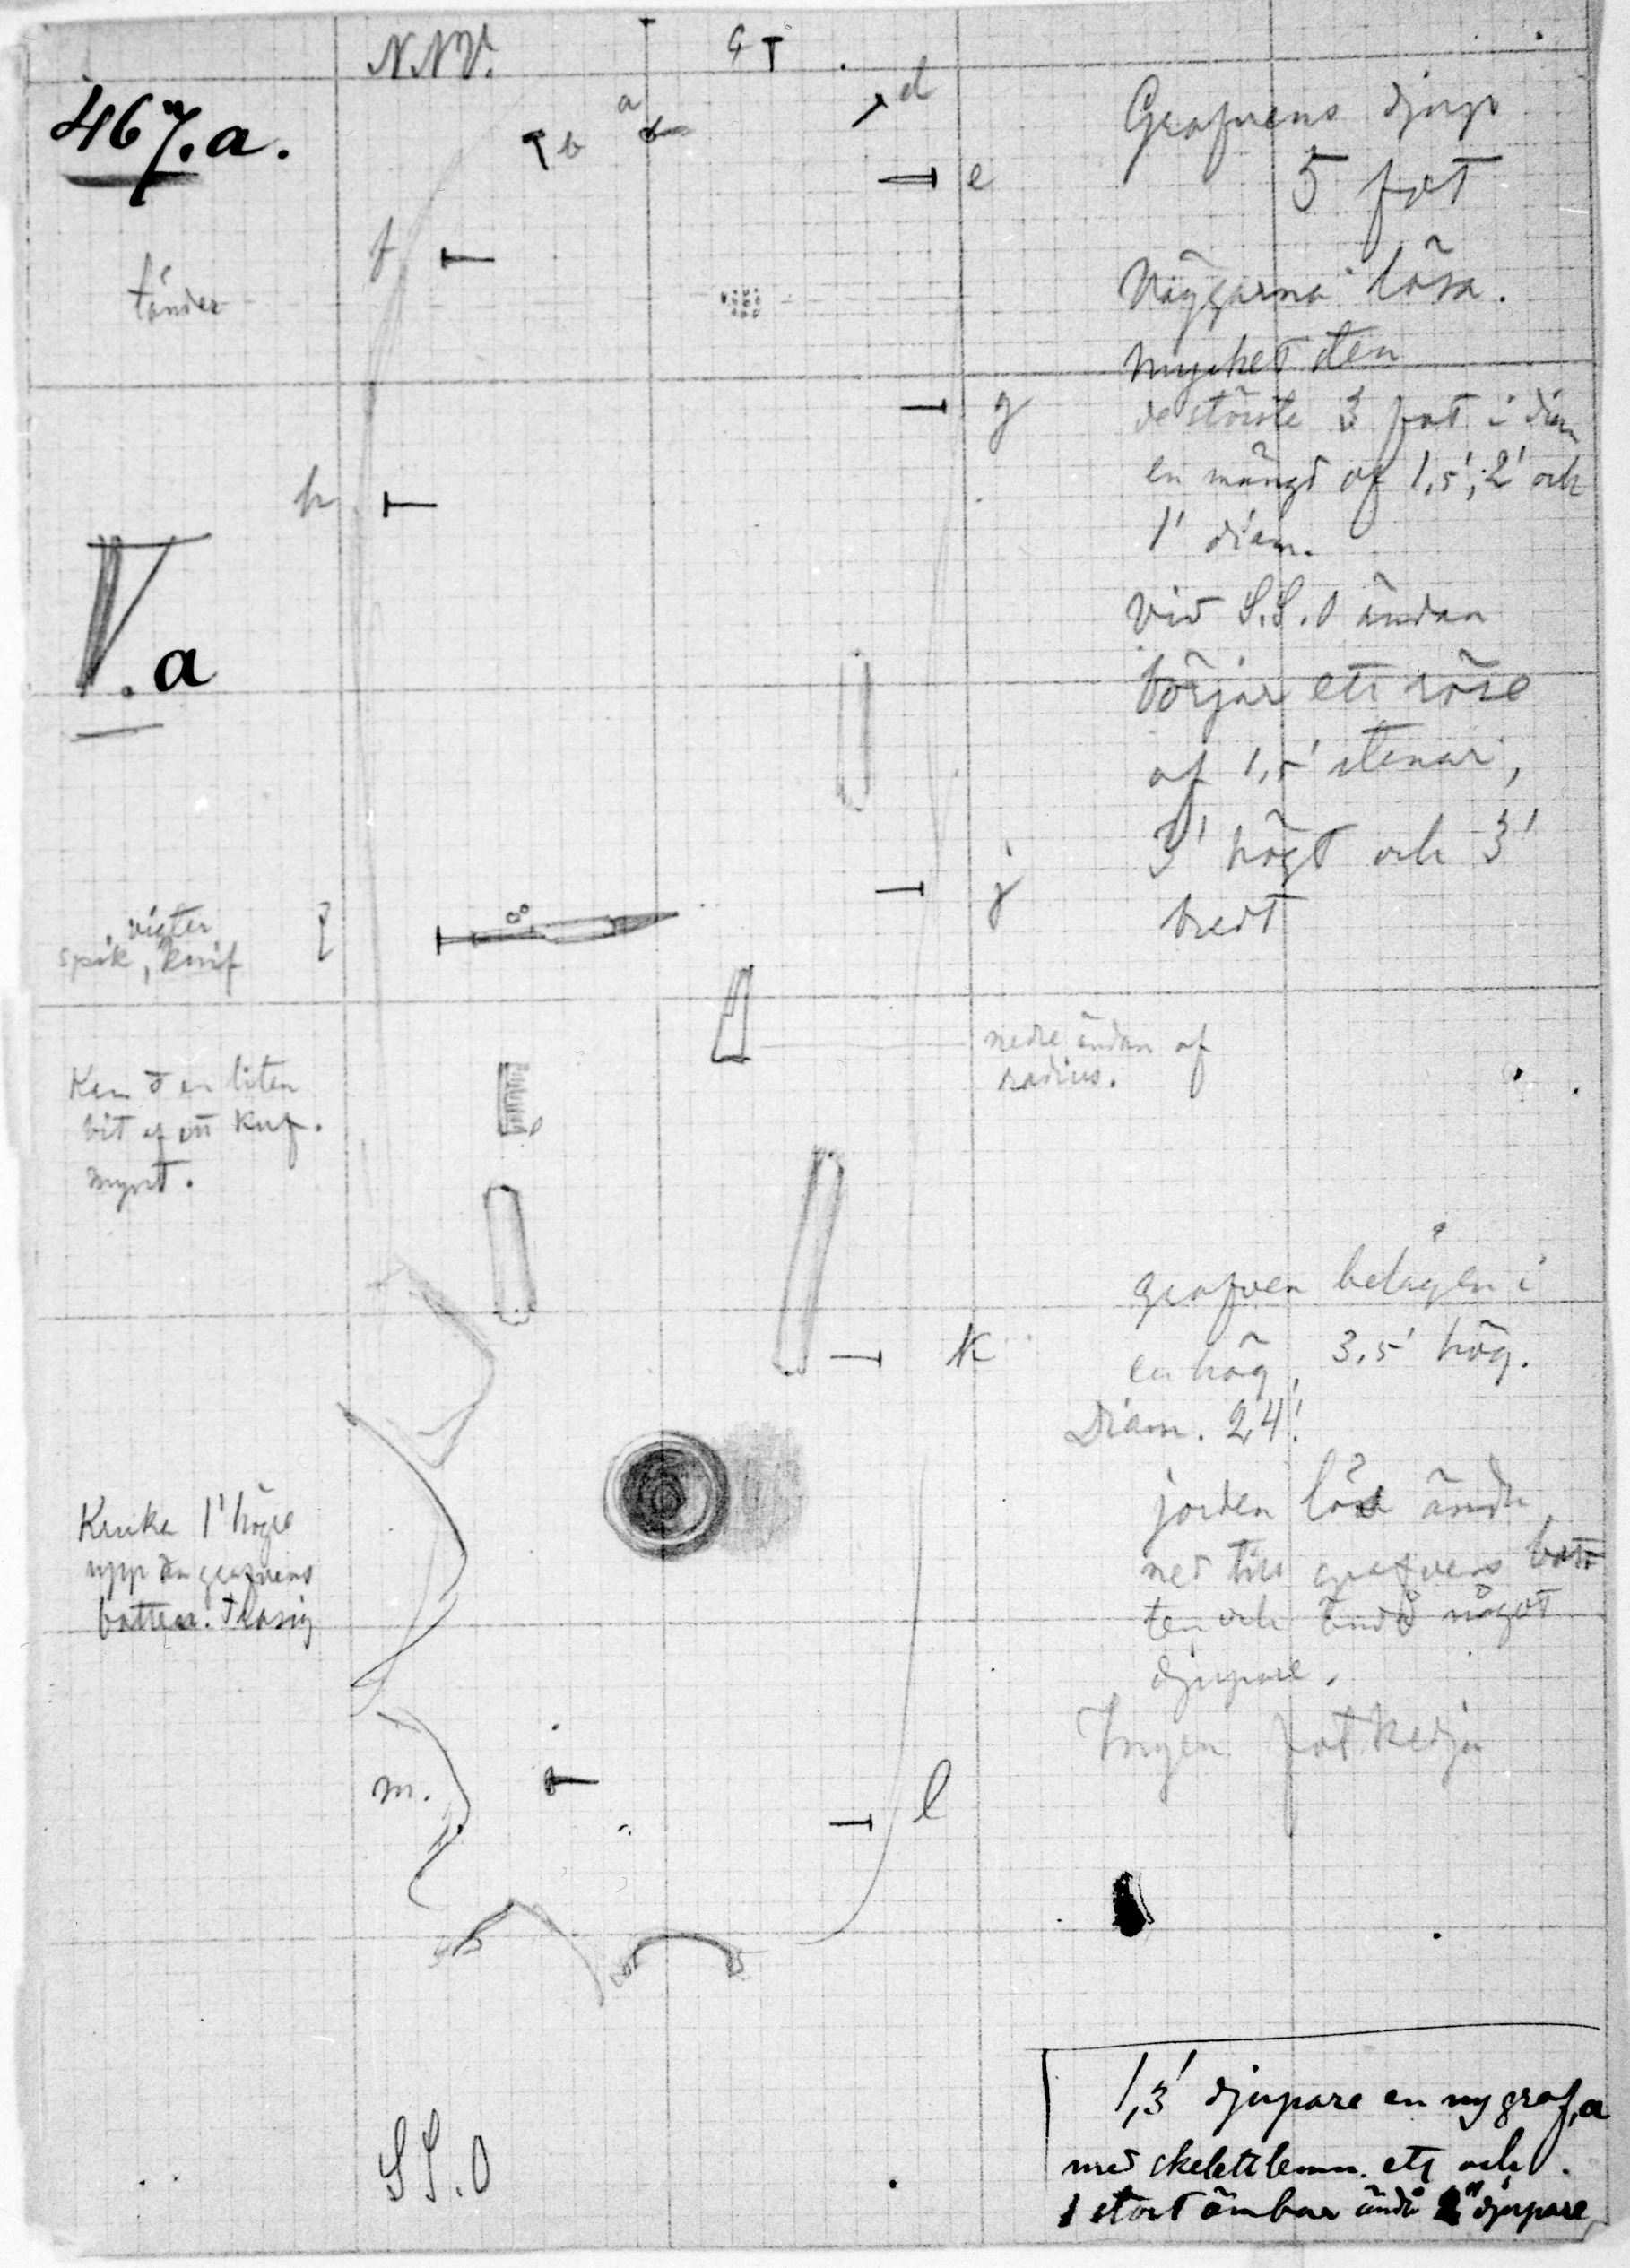 NNV.
467.a.
a
b
d
c
e
f
g
h
j
k
l
m.
tänder
V.a
vigter
spik, knif
Kam o en liten
bit af ett kuf.
mynt.
Kruka 1' högre
upp än grafvens
botten. Trasig
SS.O
Grafvens djup
5 fot
Väggarna lösa.
mycket sten
de störste 3 fot i diam
en mängd af 1,5', 2' och
1' diam.
Vid S.S.O ändan
börjar ett röse
af 1,5' stenar,
3' högt och 3'
bredt
nedre ändan af
radius.
grafven belägen i
en hög, 3,5' hög.
Diam. 24'.
jorden lös ända
ned till grafvens bot
ten och ändå något
djupare.
Ingen fot kedja
1,3' djupare en ny graf, a
med skelettlemn. etc och
1 stort ämbar ändå 2" djupare